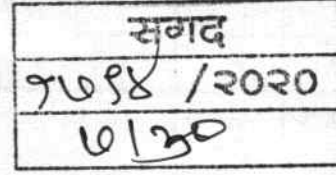 सगद
१७९४ /२०२०
७/३०